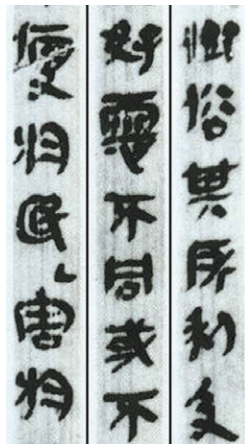 鄉俗其所利及
好惡不同或不
便於民└害於